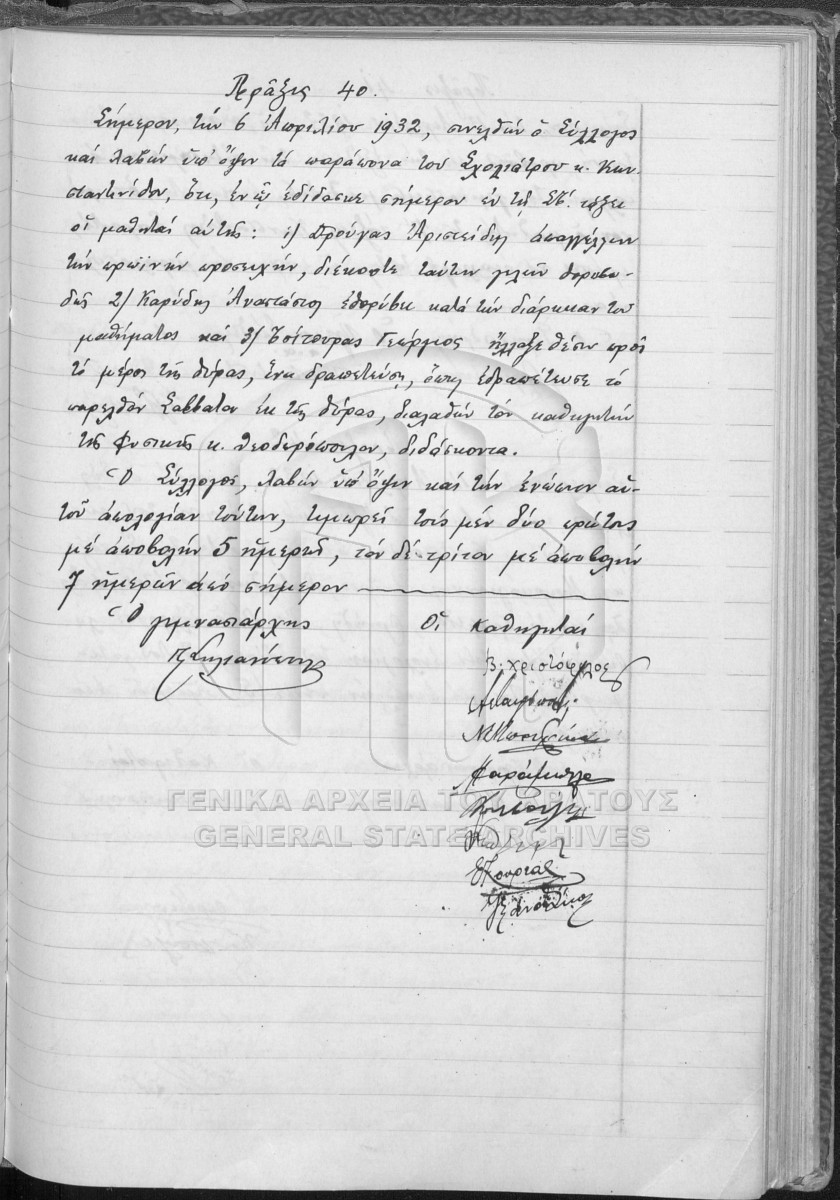 Πρᾶξις 40.
Σήμερον, τὴν 6 Ἀπριλίου 1932, συνελθὼν ὁ Σύλλογος
καὶ λαβὼν ὑπ' ὄψιν τὰ παράπονα τοῦ Σχολιάτρου κ. Κων-
σταντινίδου, ὅτι, ἐν ᾧ ἐδίδασκε σήμερον ἐν τῇ Στ΄. τάξει
οἱ μαθηταὶ αὐτῆς: 1) Δρούγας Ἀριστείδης ἀπαγγέλλων
τὴν πρωϊνὴν προσευχήν, διέκοψε ταύτην γελῶν θορυβω-
δῶς 2) Καρύδης Ἀναστάσιος ἐθορύβει κατὰ τὴν διάρκειαν τοῦ
μαθήματος καὶ 3) Τσίτουρας Γεώργιος ἤλλαξε θέσιν πρὸς
τὸ μέρος τῆς θύρας, ἵνα δραπετεύσῃ, ὅπως ἐδραπέτευσε τὸ
παρελθὸν Σάββατον ἐκ τῆς θύρας, διαλαθὼν τὸν καθηγητὴν
τῆς Φυσικῆς κ. Θεοδωρόπουλον, διδάσκοντα.
Ὁ Σύλλογος, λαβὼν ὑπ' ὄψιν καὶ τὴν ἐνώπιον αὐ-
τοῦ ἀπολογίαν τούτων, τιμωρεῖ τοὺς μὲν δύο πρώτους
μὲ ἀποβολὴν 5 ἡμερῶν, τὸν δὲ τρίτον μὲ ἀποβολὴν
7 ἡμερῶν ἀπὸ σήμερον
Ὁ γυμνασιάρχης Οἱ καθηγηταί
Β. Χριστόφιλος
ΓΕΝΙΚΑ ΑΡΧΕΙΑ ΤΟΥ ΚΡΑΤΟΥΣ
GENERAL STATE ARCHIVES